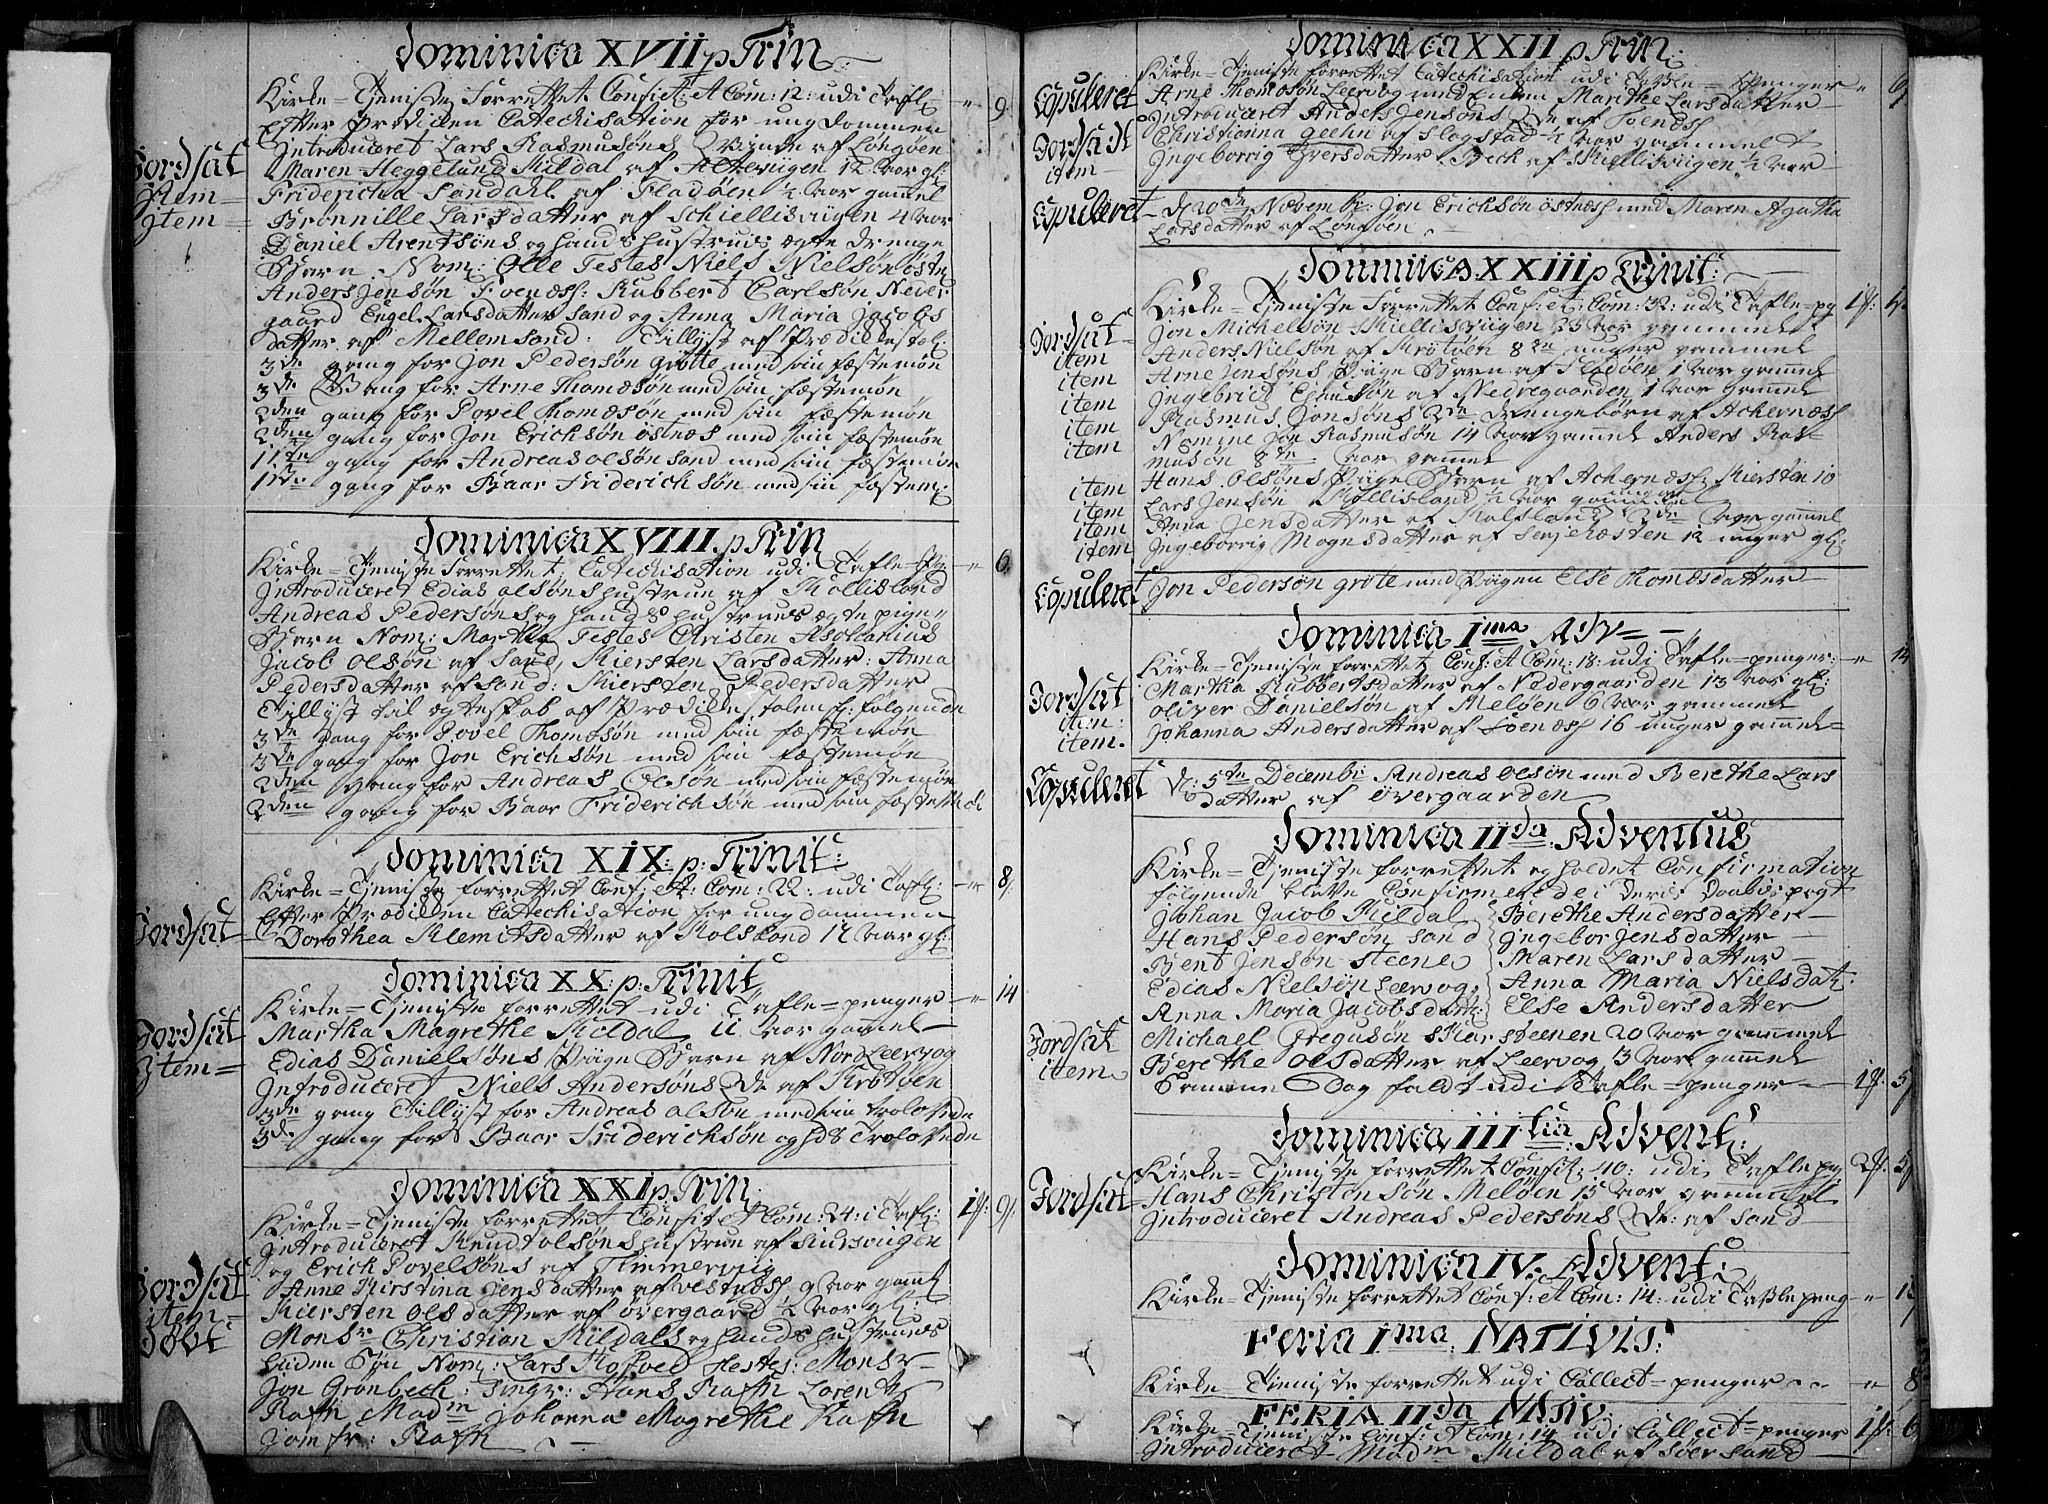 Dominica XVII p Trin
Kirke=Tjeniste Forrettet Confiet: A Com: 12: udi Tafl: -"- 9
Efter Prædiken Catechisation for ungdommen
Introduceret Lars Rasmusøns Qvinde af Longøen
Jordsat Maren Heggelund Kildal af Altevigen 12 Aar gl:
Item= Fridericha Sandahl af Fladøen ½ Aar gamel
Item= Brønnille Larsdatter af Schiellisviigen 4 Aar
Daniel Arentsøns og hands hustrues ægte drenge
Barn Nom: Olle Testes Niels Nielsøn østnes
Anders Jensøn Foenæss: Rubbert Carlsøn Neder
gaard Engel Larsdatter Sand og Anna Maria Jacobs
datter af Mellemsand. Tillyst af Prædickestol:
3de gang for Jon Pedersøn grøtte med sin fæstemøe
3de Gang for: Arne Thomæsøn med sin fæstemøe
2den gang for Povel Thomæsøn med sin fæstemøe
2den gang for Jon Erichsøn østnæs med sin fæstemøe
1ste gang for Andreas olsøn sand med sin fæstemøe
1ste gang for Baar Friderichsøn med sin fæstem:
Dominica XVIII. p Trin
Kirke=Tjeniste Forrettet, Catechisation udi Tafle -"- 6
Introduceret Edias olsøns hustrue af Kollisland
Andreas Pedersøns og hands hustrues ægte pige
Barn Nom: Martha Testes Christen Aschanius
Jacob olsøn af Sand, Kiersten Larsdatter: Anna
Pedersdatter af sand: Kiersten Pedersdatter
Tillyst til ægteskab af Prædickestolen følgende
3de gang for Povel Thomæsøn med sin fæstemøe
3de gang for Jon Erichsøn med sin fæstemøe
2den gang for Andreas Olsøn med sin fæstemøe
2den gang for Baar Friderichsøn med sin fæstemøe
Dominica XIX: p: Trinit:
Kirke=Tjeniste forrettet Confiet: Com: 22: udi Tafl: -"- 8
Efter Prædicken Catechisation for ungdommen
Jordsat Dorothea Klemitsdatter af Rolsland 12 Aar gl:
Dominica XX: p: Trinit,
Kirke=Tjeniste forrettet udi Tafle=penger -"- 14
Jordsat Martha Magrethe Kildal 11 Aar gamel
Item= Edias Danielsøns Pige Barn af Nord Leervog
Introduceret Niels Andersøns Q: af Krøtøen
3de gang Tillyst for Andreas olsøn med sin trolovede
3de gang for Baar Friderichsøn og hds Trolovede
Dominica XXI p. Trin:
Kirke=Tjeniste forrettet Confit: et Com: 24: i Tafl: 1f: 9
Introduceret Knud olsøns hustrue af
og Erich Povelsøns af Timmervig
Jordsat Anne Kirstina Jensdatter af Vestnæss 9 Aar gaml
item= Kiersten olsdatter af øvergaard ½ Aar gl:
Døbt Monsr Christian Kildals og hands hustrues
liden Søn Nom: Lars Testes: Monsr
Jon Grønbech: Singr: Hans Rafn Lorentz
Rafn Madm Johanna Magrethe Rafn
Jomfr: Rafn
Dominica XXII p Trin:
Kirke=Tjeniste forrettet Catechisation udi Tafle=Penger " 6
Copuleret Arne Thomæsøn Leervog med Enken Marithe Larsdatter
Introduceret Anders Jensøns Q: af Foenæss
Jordsadt Christianna geehn af Slogstad ½ Aar gammel
item Ingeborrig Iversdatter Bech af Kiellisviigen ½ Aar
Copuleret d: 20de Novembr: Jon Erichsøn østnæss med Maren Agatha
Larsdatter af Longøen
Dominica XXIII p Trinit:
Kirke=Tjeniste forrettet Confiet: Com: 32: udi Tafle=pg 1f:
Jordsat Jon Michelsøn Kiellisviigen 23 Aar gammel
item Anders Nielsøn af Krøtøen 8te uger gammel
item Arne Jensøns Pige Barn af Fladøen 1 Aar gammel
item Ingebrict af Nedregaarden 1 Aar gammel
item Rasmus Jonsøns 2de drengebørn af Achernæss
item Nomine Jon Rasmusøn 14 Aar gammel Anders Ras=
musøn 8te Aar gammel
item Hans Olsøns Pige Barn af Achernæss: Kiersten 10
item Lars Jensøn Kollisland ½ Aar gammel
item Anna Jensdatter af Rolsland 2de Aar gammel
item Ingeborrig Mognsdatter af 12 uger gl:
Copuleret Jon Pedersøn grøte med Pigen Else Thomæsdatter
Dominica Ima Adv
Kirke=Tjeniste forrettet Conf: A Com: 18: udi Tafle=penger: -"- 14
Jordsat Martha Rubbertsdatter af Nedergaarden 13 Aar gl:
item: Oliver Danielsøn af Meløen 6 Aar gammel
item. Johanna Andersdatter af Foenæss 16 uger gammel
Copuleret d: 5te Decembr: Andreas olsøn med Berethe Lars
datter af øvergaarden
Dominica IIda Adventus
Kirke=Tjeniste forrettet og holdet Confirmation
følgende bleve Confirmerede i Deris Daabis pagt
Johan Jacob Kildal Berethe Andersdatter
Hans Pedersøn sand Ingebor Jensdatter
Bent Jensøn Steene Maren Larsdatter
Edias Nielsøn Leervog: Anna Maria Nielsdat:
Anna Maria Jacobsdat: Else Andersdatter
Jordsat Michael Gregusøn Skiarsteenen 20 Aar gammel
item Berethe olsdatter af Leervog 13 Aar gammel
Samme Dag faldt udi Tafle=penger 1f: 5
Dominica IIItia: Advent:
Kirke=Tjeniste forrettet Confit: 40: udi Tafle pg 2f: 5
Jordsat Hans Christensøn Meløen 15 Aar gammel
Introduceret Andreas Pedersøns Q: af sand
Dominica IV. Advent:
Kirke=Tjeniste forrettet Conf: A Com: 14: udi Tafle peng -"-
Feria Ima: Nativis:
Kirke=Tjeniste forrettet udi Collect=penger -"- 8
FERIA IIda Nativ
Kirke=Tjeniste Conf: A Com: 14 udi Collect=penger 1f: 6
Introduceret Madm Kildal af Søer sand